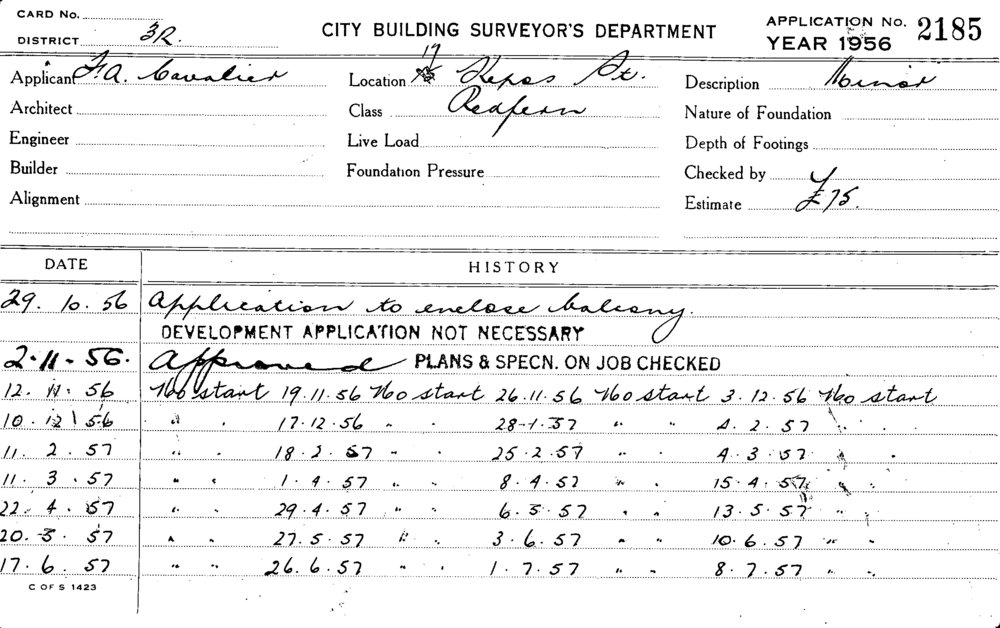 CARD No.
DISTRICT 3R.
CITY BUILDING SURVEYOR'S DEPARTMENT
APPLICATION No. 2185
YEAR 1956
Applicant F.A. Cavalier
Location 17 Kepos St.
Description Minor
Architect
Class Redfern
Nature of Foundation
Engineer
Live Load
Depth of Footings
Builder
Foundation Pressure
Checked by
Alignment
Estimate £75.
DATE HISTORY
29. 10. 56 Application to enclose balcony.
DEVELOPMENT APPLICATION NOT NECESSARY
2.11.56. Approved PLANS & SPECN. ON JOB CHECKED
12. 11. 56 No start 19.11.56 No start 26.11.56 No start 3.12.56 No start
10. 12. 56 " " 17.12.56 " " 28.1.57 " " 4.2.57 " "
11. 2. 57 " " 18.2.57 " " 25.2.57 " " 4.3.57 " "
11. 3. 57 " " 1.4.57 " " 8.4.57 " " 15.4.57 " "
22. 4. 57 " " 29.4.57 " " 6.5.57 " " 13.5.57 " "
20. 5. 57 " " 27.5.57 " " 3.6.57 " " 10.6.57 " "
17. 6. 57 " " 26.6.57 " " 1.7.57 " " 8.7.57 " "
C OF S 1423